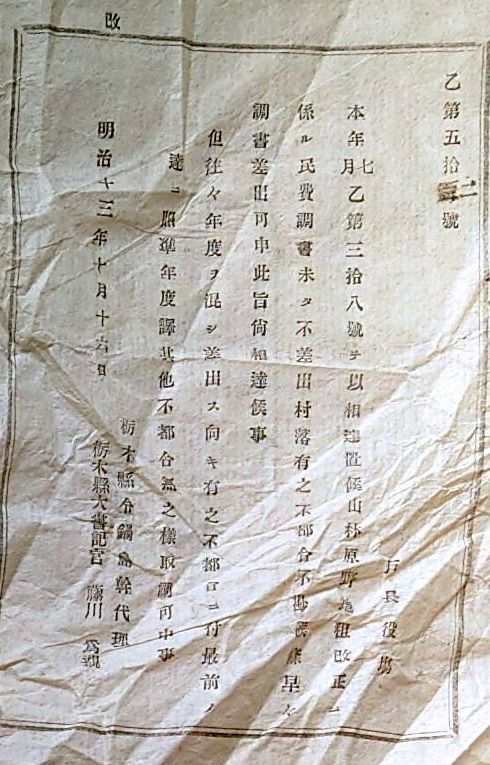 改
乙第五拾二號
戸長役塲
本年七月乙第三拾八號ヲ以相達置候山林原野地租改正ニ
係ル民費調書未タ不差出村落有之不都合不尠候條早々
調書差出可申此旨尚相達候事
但往々年度ヲ混シ差出ス向キ有之不都合ニ付最前ノ
達ニ照準年度譯其他不都合無之樣取調可申事
明治十三年十月十六日
栃木縣令鍋島幹代理
栃木縣大書記官 藤川爲親